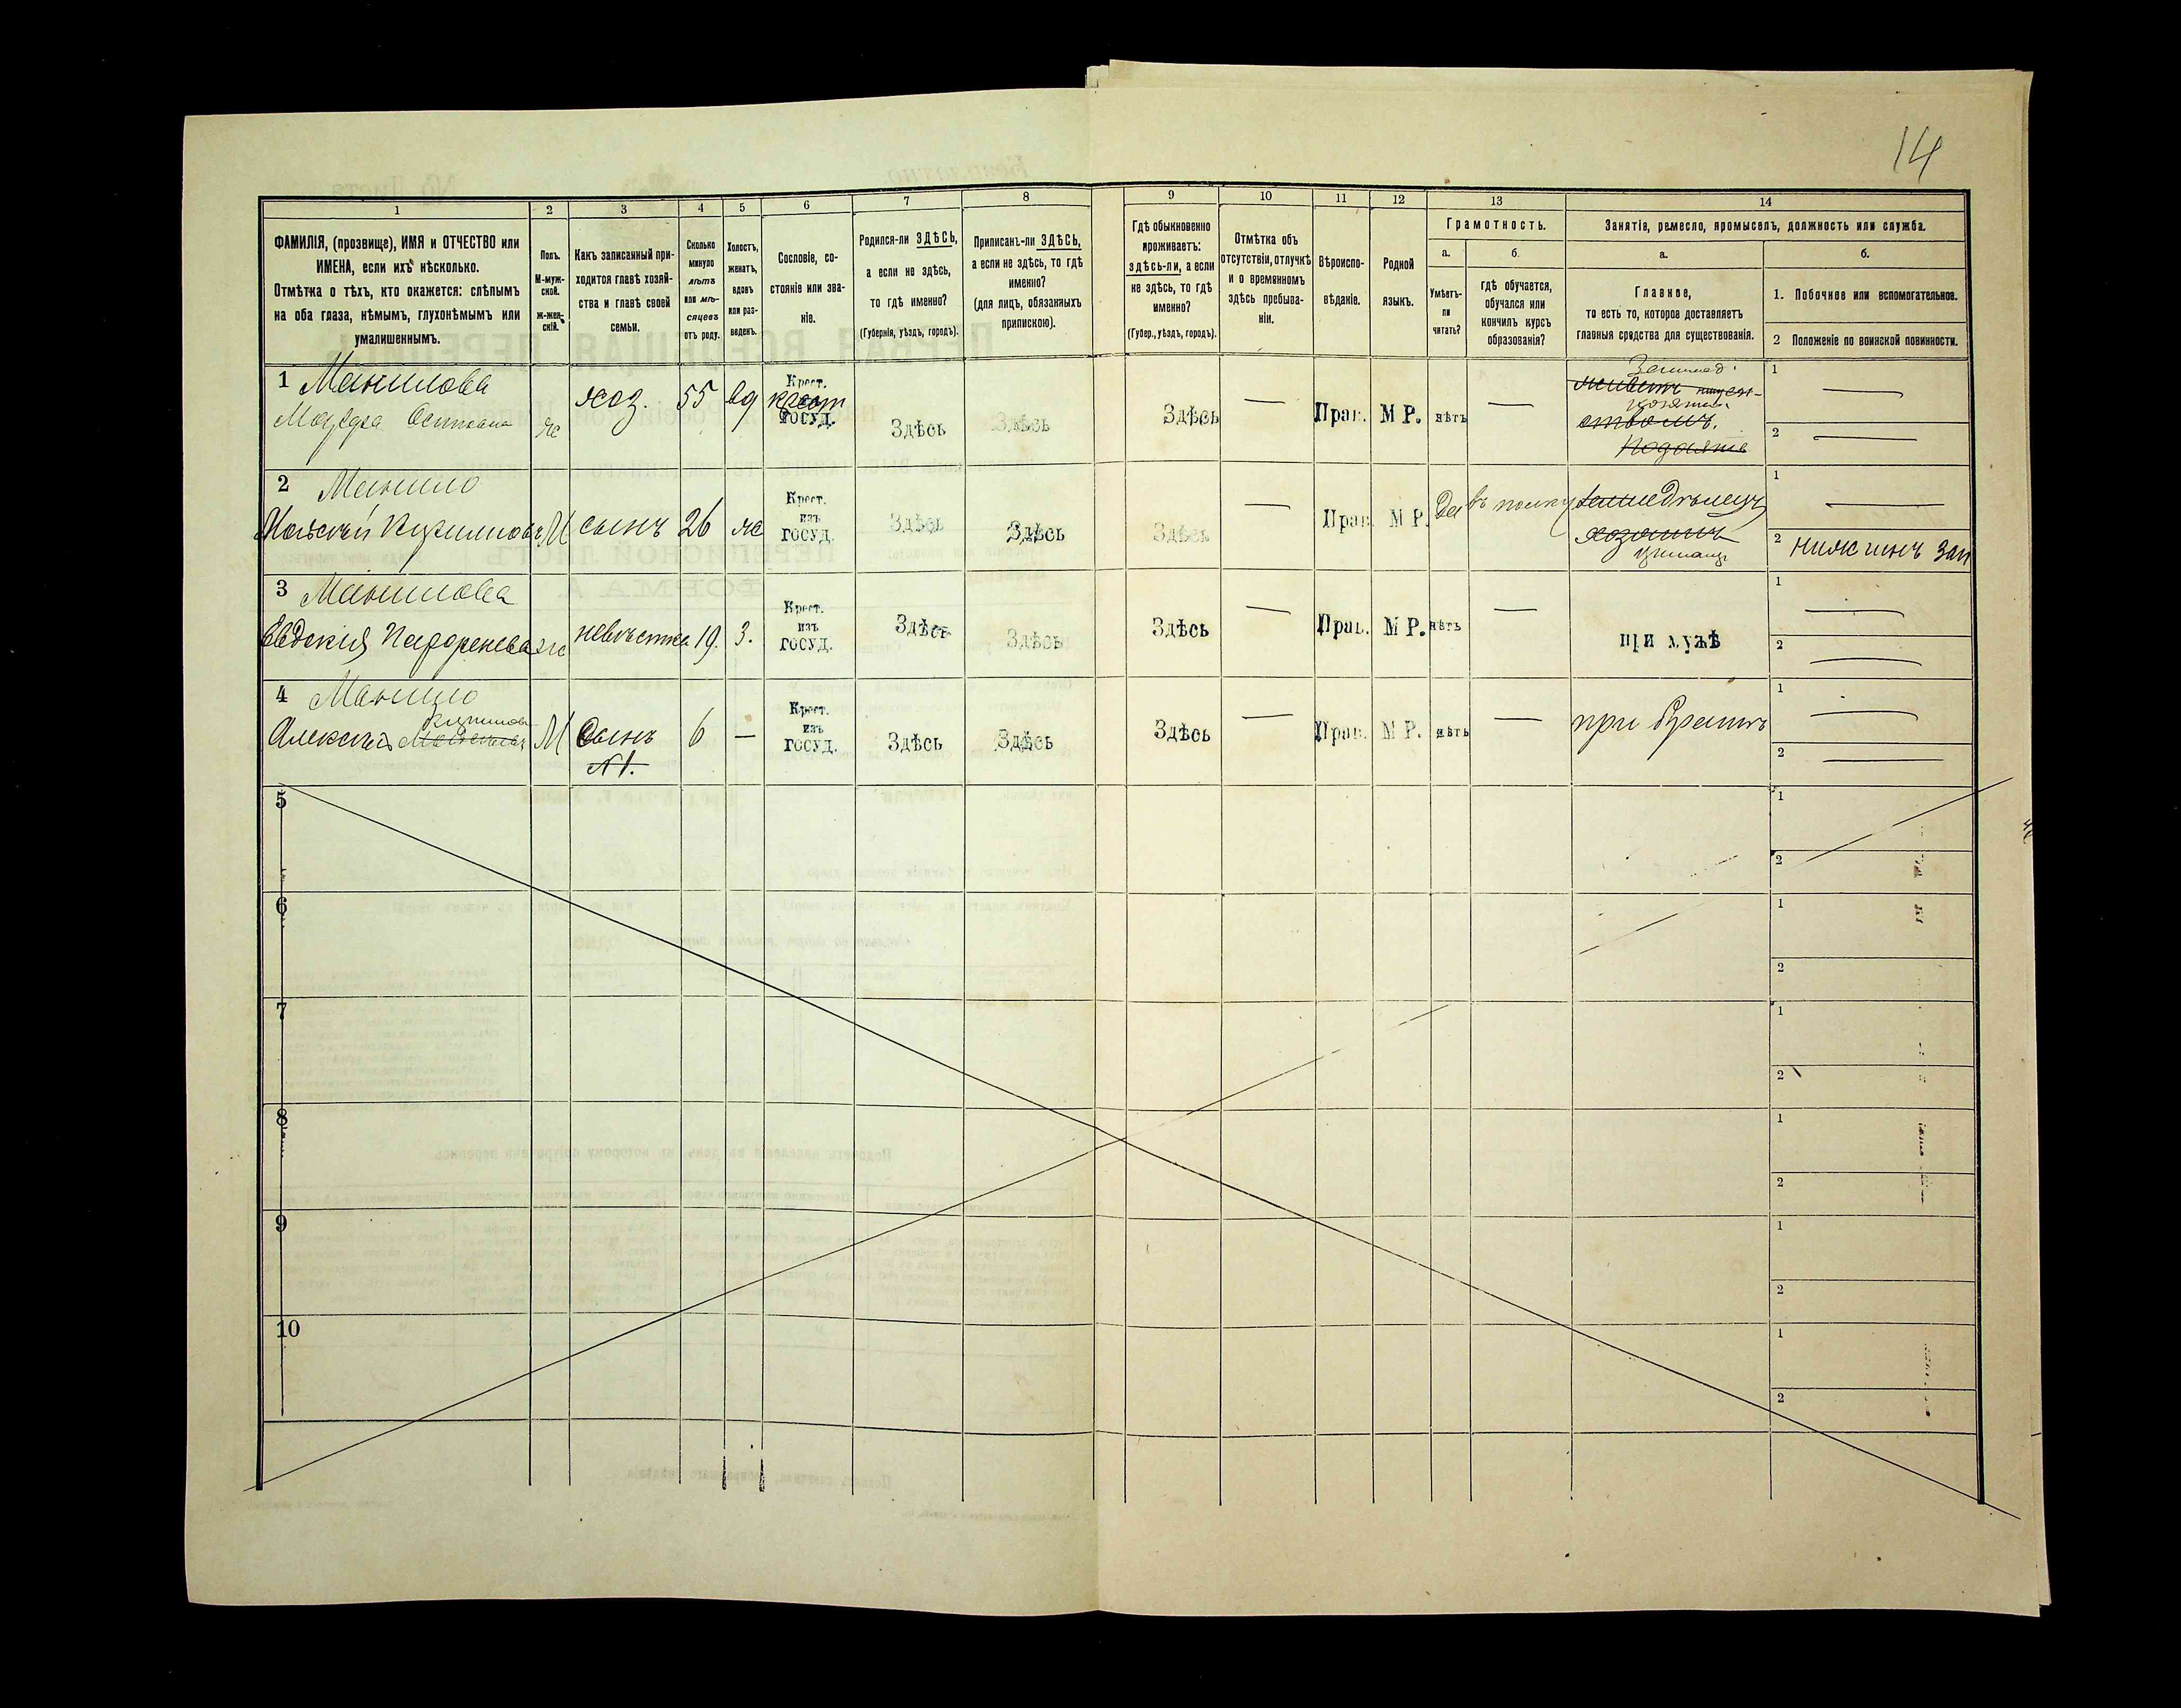 14
1 2 3 4 5 6 7 8 9 10 11 12 13 14
ФАМИЛІЯ, (прозвище), ИМЯ и ОТЧЕСТВО или
ИМЕНА, если ихъ нѣсколько.
Отмѣтка о тѣхъ, кто окажется: слѣпымъ
на оба глаза, нѣмымъ, глухонѣмымъ или
умалишеннымъ.
Полъ.
М-муж-
ской.
ж-жен-
скій.
Какъ записанный при-
ходится главѣ хозяй-
ства и главѣ своей
семьи.
Сколько
минуло
лѣтъ
или мѣ-
сяцевъ
отъ роду.
Холостъ,
женатъ,
вдовъ
или раз-
веденъ.
Сословіе, со-
стояніе или зва-
ніе.
Родился-ли ЗДѢСЬ,
а если не здѣсь,
то гдѣ именно?
(Губернія, уѣздъ, городъ).
Приписанъ-ли ЗДѢСЬ,
а если не здѣсь, то гдѣ
именно?
(для лицъ, обязанныхъ
припискою).
Гдѣ обыкновенно
проживаетъ:
здѣсь-ли, а если
не здѣсь, то гдѣ
именно?
(Губер., уѣздъ, городъ).
Отмѣтка объ
отсутствіи, отлучкѣ
и о временномъ
здѣсь пребыва-
ніи.
Вѣроиспо-
вѣданіе.
Родной
языкъ.
Грамотность.
а.
Умѣетъ-
ли
читать?
б.
гдѣ обучается,
обучался или
кончилъ курсъ
образованія?
Занятіе, ремесло, промыселъ, должность или служба.
а.
Главное,
то есть то, которое доставляетъ
главныя средства для существованія.
б.
1. Побочное или вспомогательное.
2 Положеніе по воинской повинности.
1 Манилова
Марфа Осиповна
ж
хоз.
55
вд
Крест.
госуд.
Здѣсь
Здѣсь
Здѣсь
—
Прав.
М Р.
нѣтъ
—
Подаяніе
1 —
2 —
2 Манило
М
сынъ
26
ж
Крест.
изъ
госуд.
Здѣсь
Здѣсь
Здѣсь
—
Прав.
М Р.
Да
въ полку
хозяинъ
1 —
2 нижній зап
3 Манилова
Евдокія
ж
невѣстка
19.
З.
Крест.
изъ
госуд.
Здѣсь
Здѣсь
Здѣсь
—
Прав.
М Р.
нѣтъ
—
при мужѣ
1 —
2 —
4 Манило
Алексѣй
М
Сынъ
N 1.
6
—
Крест.
изъ
госуд.
Здѣсь
Здѣсь
Здѣсь
—
Прав.
М Р.
нѣтъ
—
при братѣ
1 —
2 —
5
1
2
6
1
2
7
1
2
8
1
2
9
1
2
10
1
2